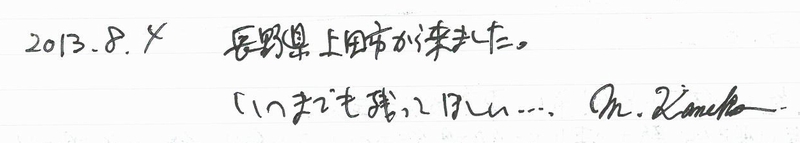 2013.8.4 長野県上田市から来ました。
いつまでも残ってほしい…. M. Kaneko